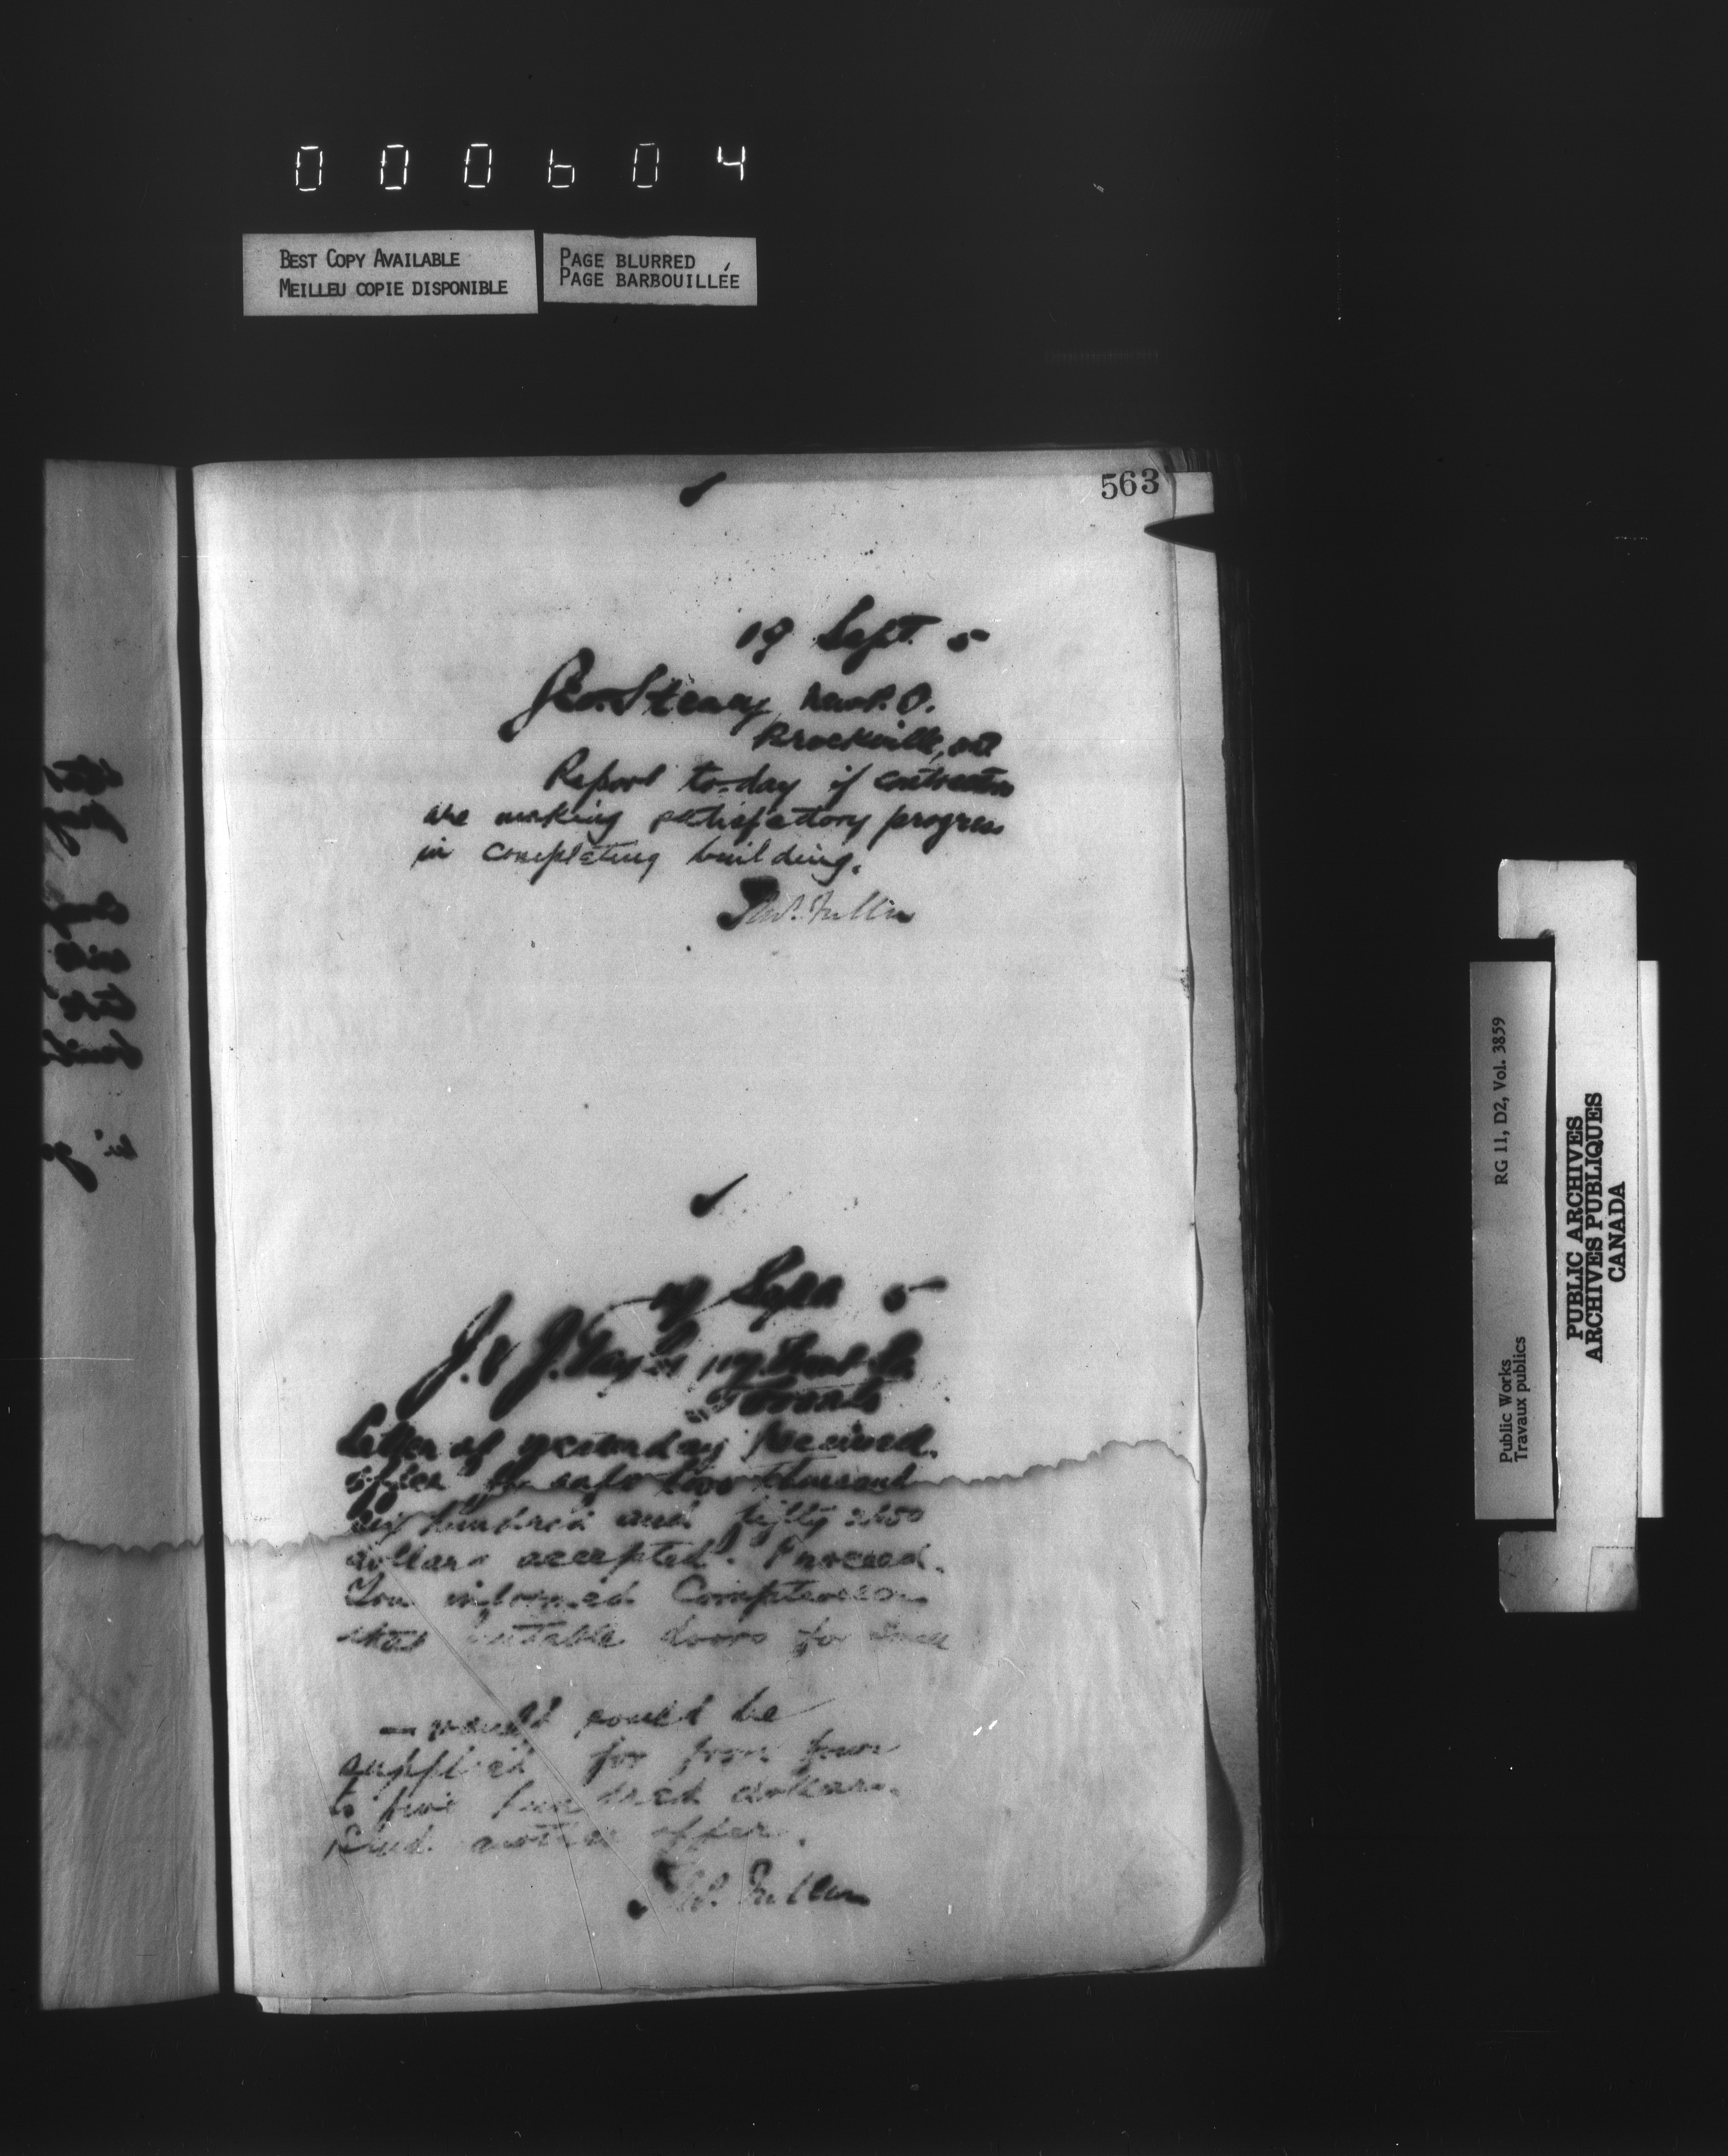 000604
BEST COPY AVAILABLE
MEILLEU COPIE DISPONIBLE
PAGE BLURRED
PAGE BARBOUILLÉE
563
19 Sept. 5
Geo. Steacy, New P.O.
Brockville, Ont
Report to-day if contractors
are making satisfactory progress
in completing building.
Thos. Fuller
19 Sept 5
J. & J. Taylor
Toronto
Letter of yesterday received.
offer for safe two thousand
six hundred and fifty 2650
dollars accepted. Proceed.
You informed
that suitable doors for
could be
supplied for from four
to five hundred dollars.
Send another offer.
Thos. Fuller
RG 11, D2, Vol. 3859
Public Works
Travaux publics
PUBLIC ARCHIVES
ARCHIVES PUBLIQUES
CANADA